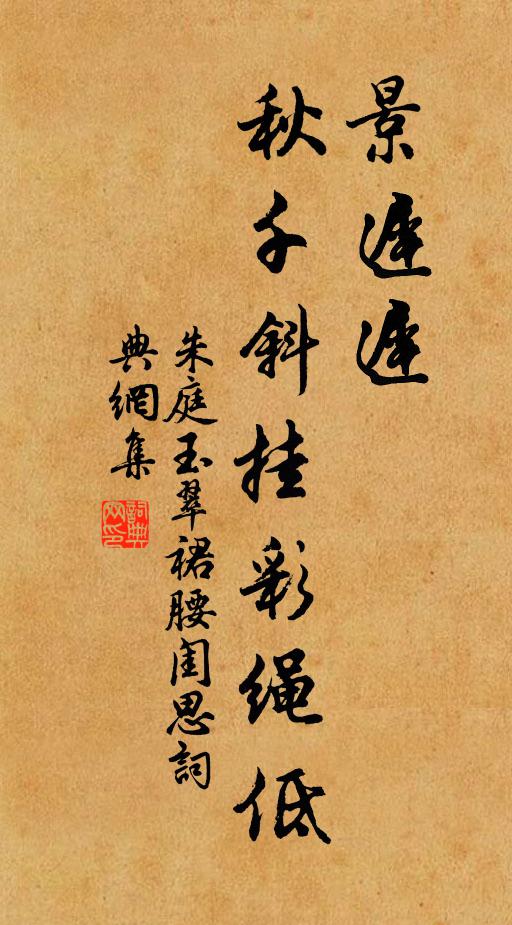 景遲遲
秋千斜挂彩绳低
朱庭玉翠裙腰闺思詞
典網集
詞典网印